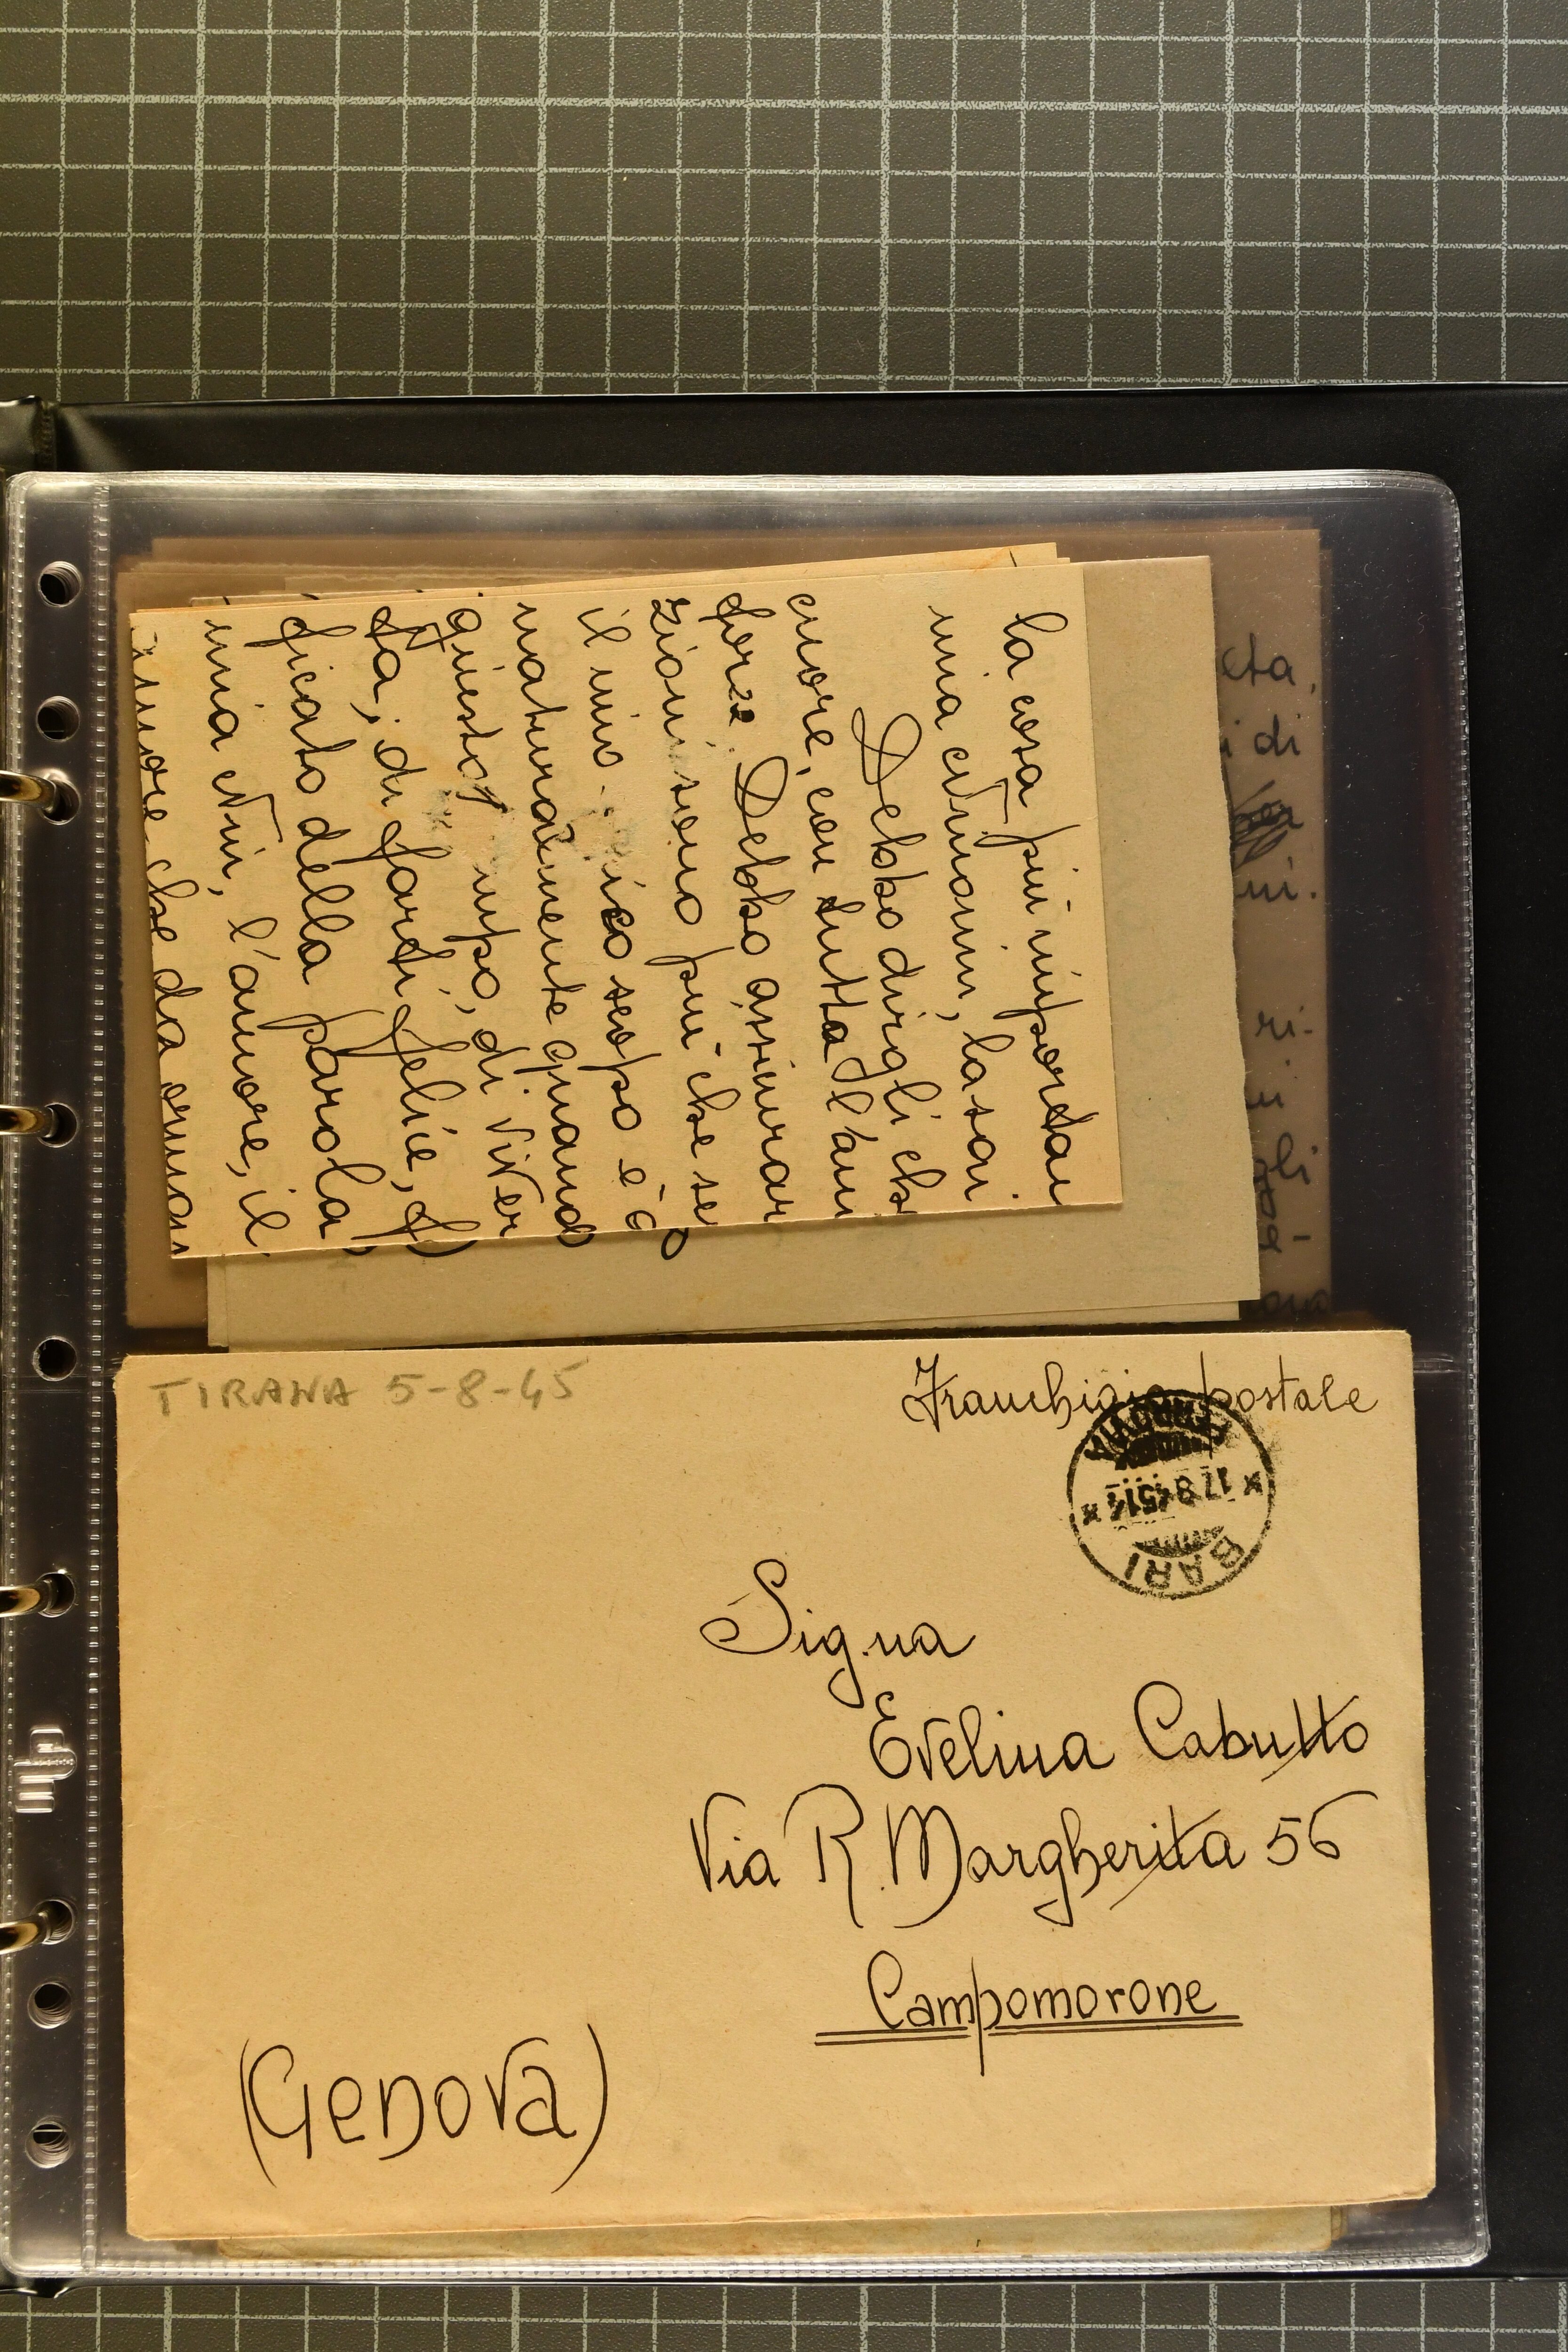 la cosa più importan
mia cNinin, la sai
Debbo dirgli che
cuore, con tutta l'ani
forze. Debbo assicurar
zioni sono più che se
il mio scopo è q
naturalmente quand
questo mpo, di viver
ta, di farti felice, f
ficato della parola,
mia cNin, l'amore, il
more che da ormai
eta,
i di
ni.
ri-
ui
gli
e-
TIRANA 5-8-45
Franchigia postale
BARI
17.8.45 14
FERROVIA
Sig.na
Evelina Cabutto
Via R. Margherita 56
Campomorone
(Genova)